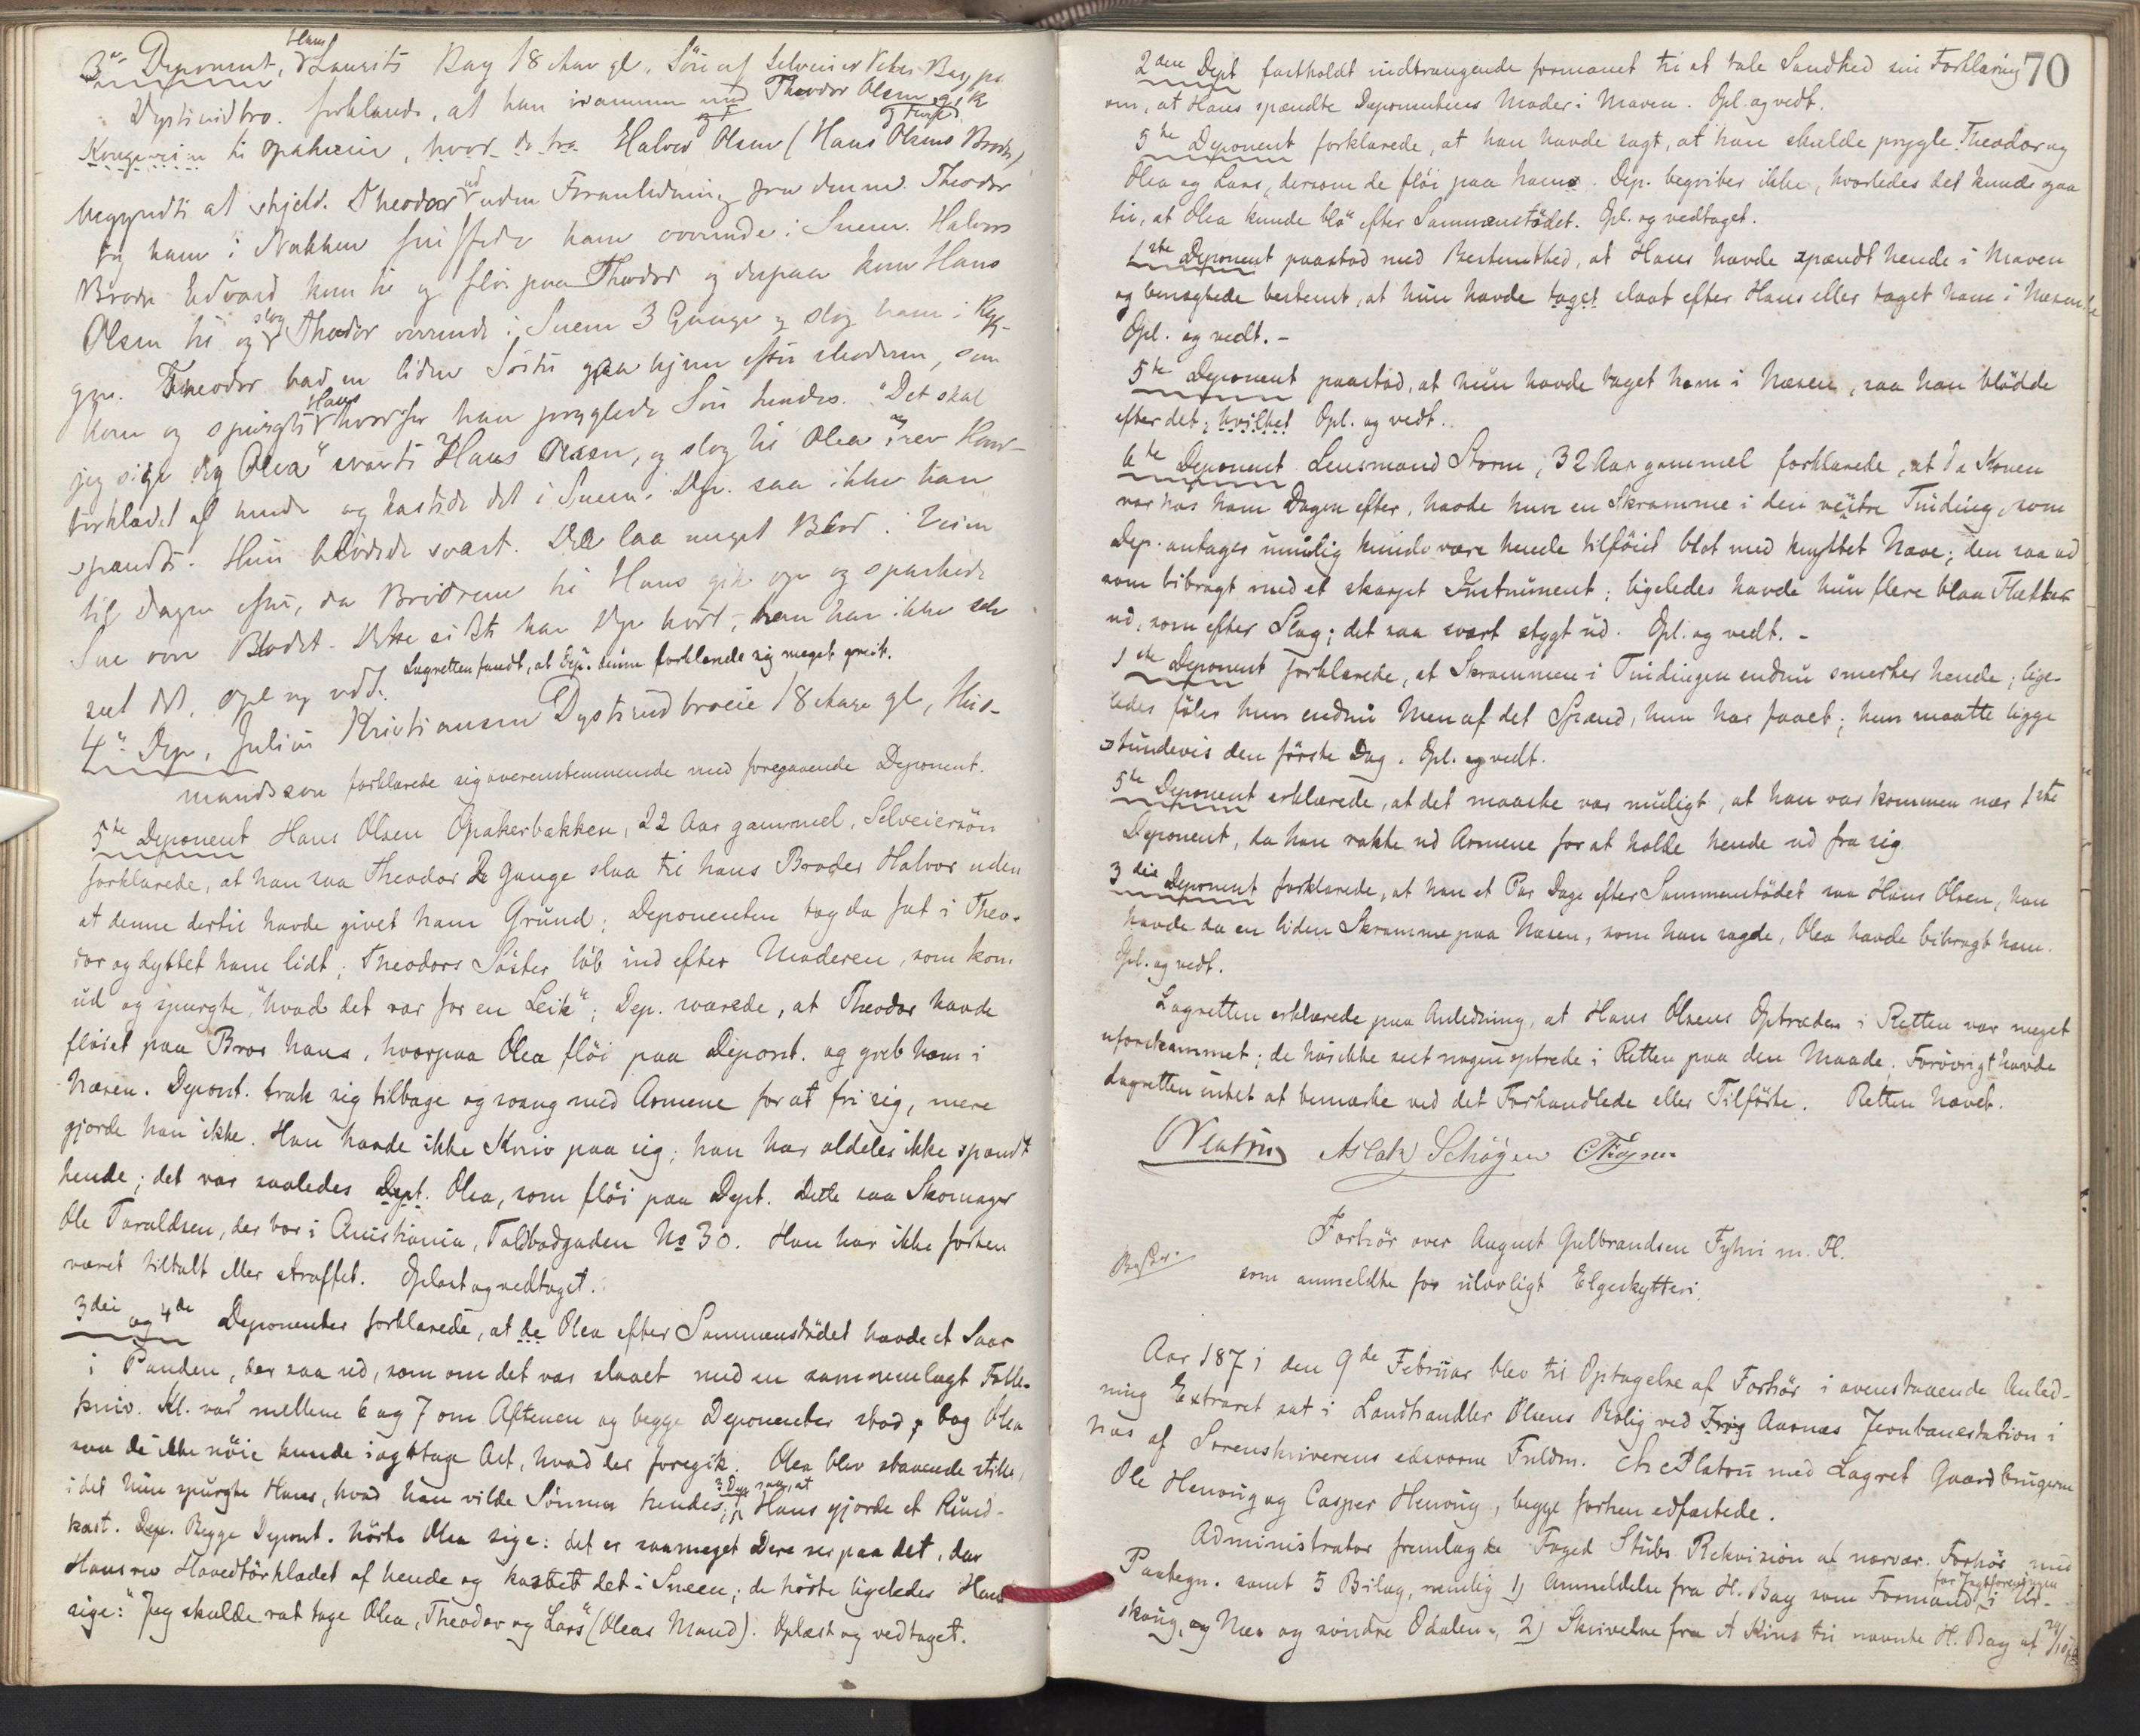 3die Deponent, Hans Laurits Bag 18 Aar gl. Søn af Selveier Peter Bag paa
Dystvidbro. forklarede, at han isammen med Theodor Olsen gik
og F. og Turfs.
Kongeveien til Opakeren, hvor de traf Halvor Olsen (Hans Olsens Broder)
begyndte at skjeld. Theodor ud uden Foranledning fra denne. Theodor
tog ham i Nakken satte ham overende i Sneen. Halvors
Broder Edvard kom til og fløi paa Theodor og derpaa kom Hans
Olsen til og slog Theodor overende i Sneen 3 Gange og slog ham i Ryg-
gen. Theodor bad en liden Søster gaa hjem efter Moderen, som
kom og spurgte Hans hvorfor han pryglede Søn hendes. "Det skal
jeg sige dig Olea" svarte Hans Olsen, og slog til Olea og rev Hoved-
tørklædet af hende og kastede det i Sneen. Dep. saa ikke han
spændte. Hun blødede svært. Der laa meget Blod i Veien
til Dagen efter, da Brødrene til Hans gik op og sparkede
Sne over Blodet. Dette sidste har Dep hørt, men han ikke selv
seet det. Opl og vedt. Lagretten fandt, at Dep. denne forklarede sig meget greit.
4de Dep, Julius Kristiansen Dystvidbroeie 18 Aar gl, Hus-
mandssøn forklarede sig overensstemmende med foregaaende Deponent.
5te Deponent Hans Olsen Opakerbakken, 22 Aar gammel, Selveiersøn
forklarede, at han saa Theodor 2 Gange slaa til hans Broder Halvor uden
at denne dertil havde givet ham Grund; Deponenten tog da fat i Theo-
dor og dyttet ham lidt; Theodors Søster løb ind efter Moderen, som kom
ud og spurgte, "hvad det var for en Leik"; Dep. svarede, at Theodor havde
fløiet paa Bror hans, hvorpaa Olea fløi paa Deponst. og greb ham i
Næsen. Depont. trak sig tilbage og svang med Armene for at fri sig, mere
gjorde han ikke. Han havde ikke Kniv paa sig; han har aldeles ikke spændt
hende; det var saaledes Dept. Olea, som fløi paa Dept. Dette saa Skomager
Ole Taraldsen, der bor i Christiania, Toldbodgaden No 30. Han har ikke forhen
været tiltalt eller straffet. Oplæst og vedtaget.
3die og 4de Deponenter forklarede, at de Olea efter Sammenstødet havde et Saar
i Panden, der saa ud, som om det var slaaet med en sammenlagt Folle-
kniv. Kl. var mellem 6 og 7 om Aftenen og begge Deponenter stod bag Olea
saa de ikke nøie kunde iagttage Alt, hvad der foregik. Olea blev staaende stille,
idet hun spurgte Hans, hvad han vilde Sønnen hendes; 3 Dep. saa, at Hans gjorde et Rund-
kast. Dep. Begge Depont. hørte Olea sige: det er saameget Dere ser paa det, da
Hans rev Hovedtørklædet af hende og kastet det i Sneen; de hørte ligeledes Hans
sige: "Jeg skulde rat tage Olea, Theodor og Lars" (Oleas Mand). Oplæst og vedtaget.
70
2den Dept fastholdt indtrængende formanet til at tale Sandhed sin Forklaring
om, at Hans spændte Deponentens Moder i Maven. Opl. og vedt.
5te Deponent forklarede, at han havde sagt, at han skulde prygle Theodor og
Olea og Lars, dersom de fløi paa ham. Dep. begriber ikke, hvorledes det kunde gaa
til, at Olea kunde blø efter Sammenstødet. Opl. og vedtaget.
1ste Deponent paastod med Bestemthed, at Hans havde spændt hende i Maven
og benægtede bestemt, at hun havde taget slaat efter Hans eller taget ham i Næsen.
Opl. og vedt. -
5te Deponent paastod, at hun havde taget ham i Næsen, saa han blødde
efter det; hvilket Opl. og vedt.
6te Deponent Lensmand Storm, 32 Aar gammel forklarede, at da Konen
var hos ham Dagen efter, havde hun en Skramme i den venstre Tinding, som
Dep. antager umulig kunde være hende tilføiet blot med knyttet Næve; den saa ud
som bibragt med et skarpt Instrument; ligeledes havde hun flere blaa Flækker
ud, som efter Slag; det saa svært stygt ud. Opl. og vedt. -
1ste Deponent forklarede, at Skrammen i Tindingen endnu smerter hende; lige-
ledes føler hun endnu Men af det Spænd, hun har faaet; hun maatte ligge
stundevis den første Dag. Opl. og vedt.
5te Deponent erklærede, at det maaske var muligt, at han var kommen nær 1ste
Deponent, da han rakte ud Armene for at holde hende ud fra sig.
3die Deponent forklarede, at han et Par Dage efter Sammenstødet saa Hans Olsen, han
havde da en liden Skramme paa Næsen, som han sagde, Olea havde bibragt ham.
Opl. og vedt.
Lagretten erklærede paa Anledning, at Hans Olsens Optræden i Retten var meget
uforskammet; de har ikke seet nogen optræde i Retten paa den Maade. Forøvrigt havde
Lagretten intet at bemærke ved det Forhandlede eller Tilførte. Retten hævet.
Aslak Schøyen
Forhør over August Gulbrandsen Fyhri m. Fl.
som anmeldte for ulovligt Elgeskytteri.
Aar 1871 den 9de Februar blev til Optagelse af Forhør i ovenstaaende Anled-
ning Extraret sat i Landhandler Olsens Bolig ved Frog Aarnæs Jernbanestation i
Næs af Sorenskriverens edsvorne Fuldm. Chr Platou med Lagret Gaardbrugerne
Ole Henning og Casper Henning, begge forhen edfæstede.
Administrator fremlagde Foged Stubs Rekvisition at nærvær. Forhør med
Paategn. samt 5 Bilag, nemlig 1) Anmeldelse fra H. Bag som Formand for Jagtforeningen i Ur-
skoug, og Næs og søndre Odalen, 2) Skrivelse fra A Kius til nævnte H. Bag af